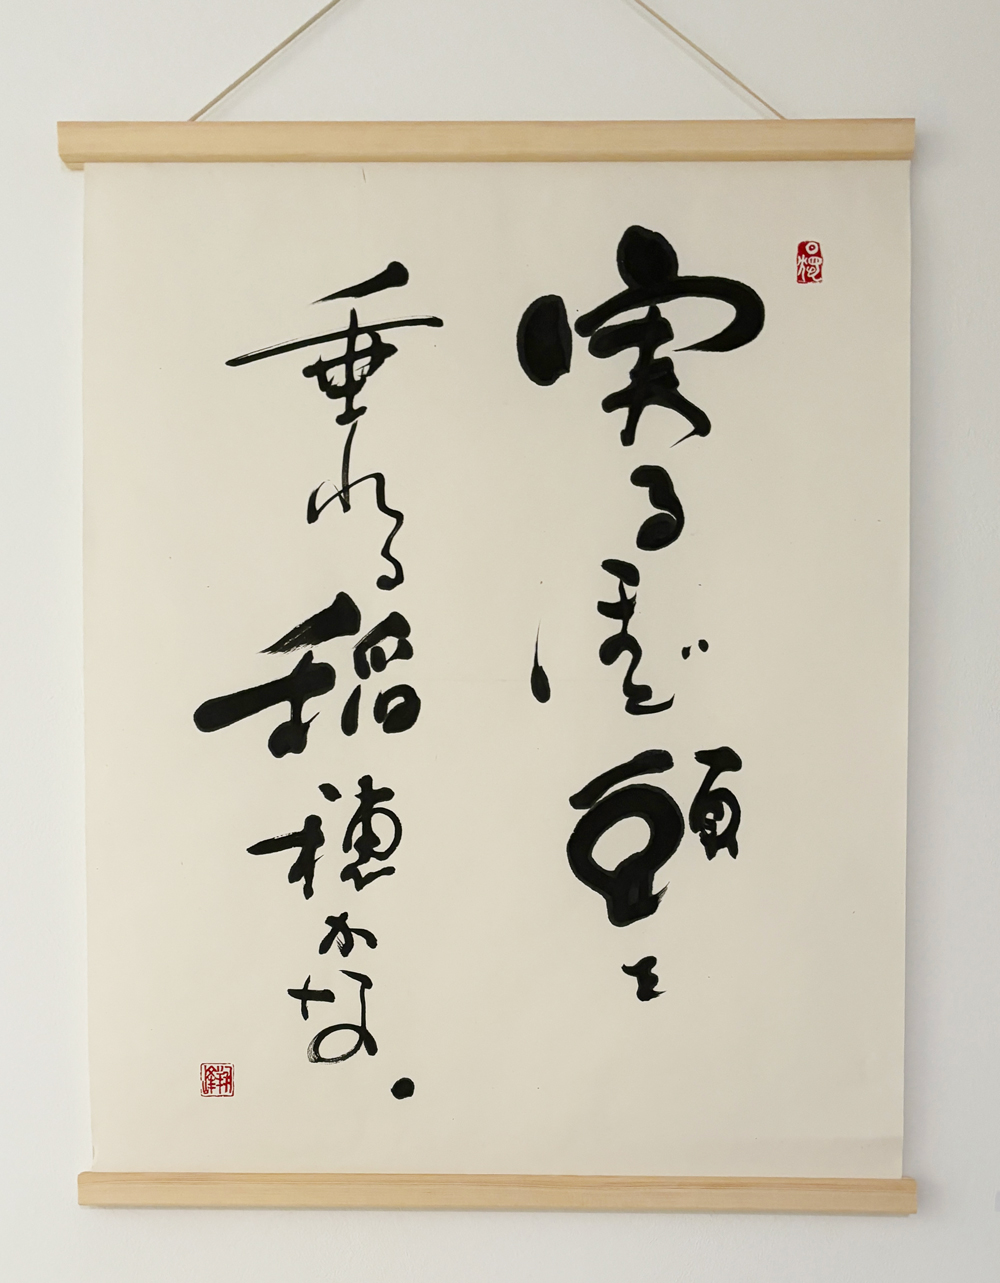 実るほど頭を
垂れる稲穂かな。